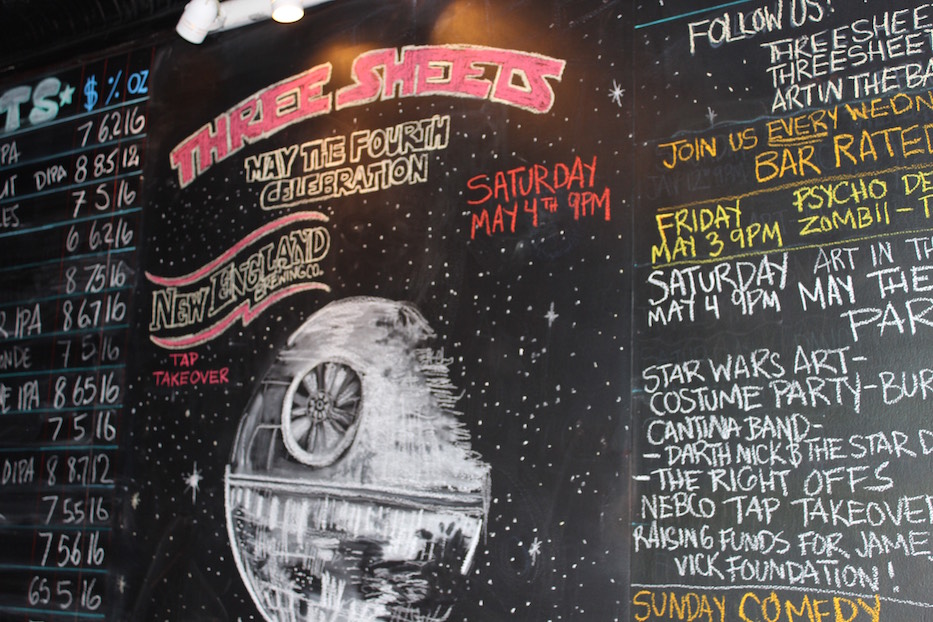 TS $ % OZ
PA 7 6.2 16
UT DIPA 8 8.5 12
LES 7 5 16
6 6.2 16
8 7.5 16
R IPA 8 6.7 16
ONDE 7 5 16
E IPA 8 6.5 16
7 5 16
DIPA 8 8.7 12
7 5.5 16
7 5.6 16
6 5.5 16
THREE SHEETS
MAY THE FOURTH
CELEBRATION
SATURDAY
MAY 4TH 9PM
NEW ENGLAND
BREWING CO.
TAP
TAKEOVER
FOLLOW US!
THREESHEE
THREESHEET
ARTINTHEBA
JOIN US EVERY WEDN
BAR RATED
FRIDAY PSYCHO DE
MAY 3 9PM ZOMBII - T
SATURDAY ART IN TH
MAY 4 9PM MAY THE
PAR
STAR WARS ART-
COSTUME PARTY-BUR
CANTINA BAND-
- DARTH NICK B THE STAR D
- THE RIGHT OFFS
NEBCO TAP TAKEOVER
RAISING FUNDS FOR JAME
VICK FOUNDATION!
SUNDAY COMEDY